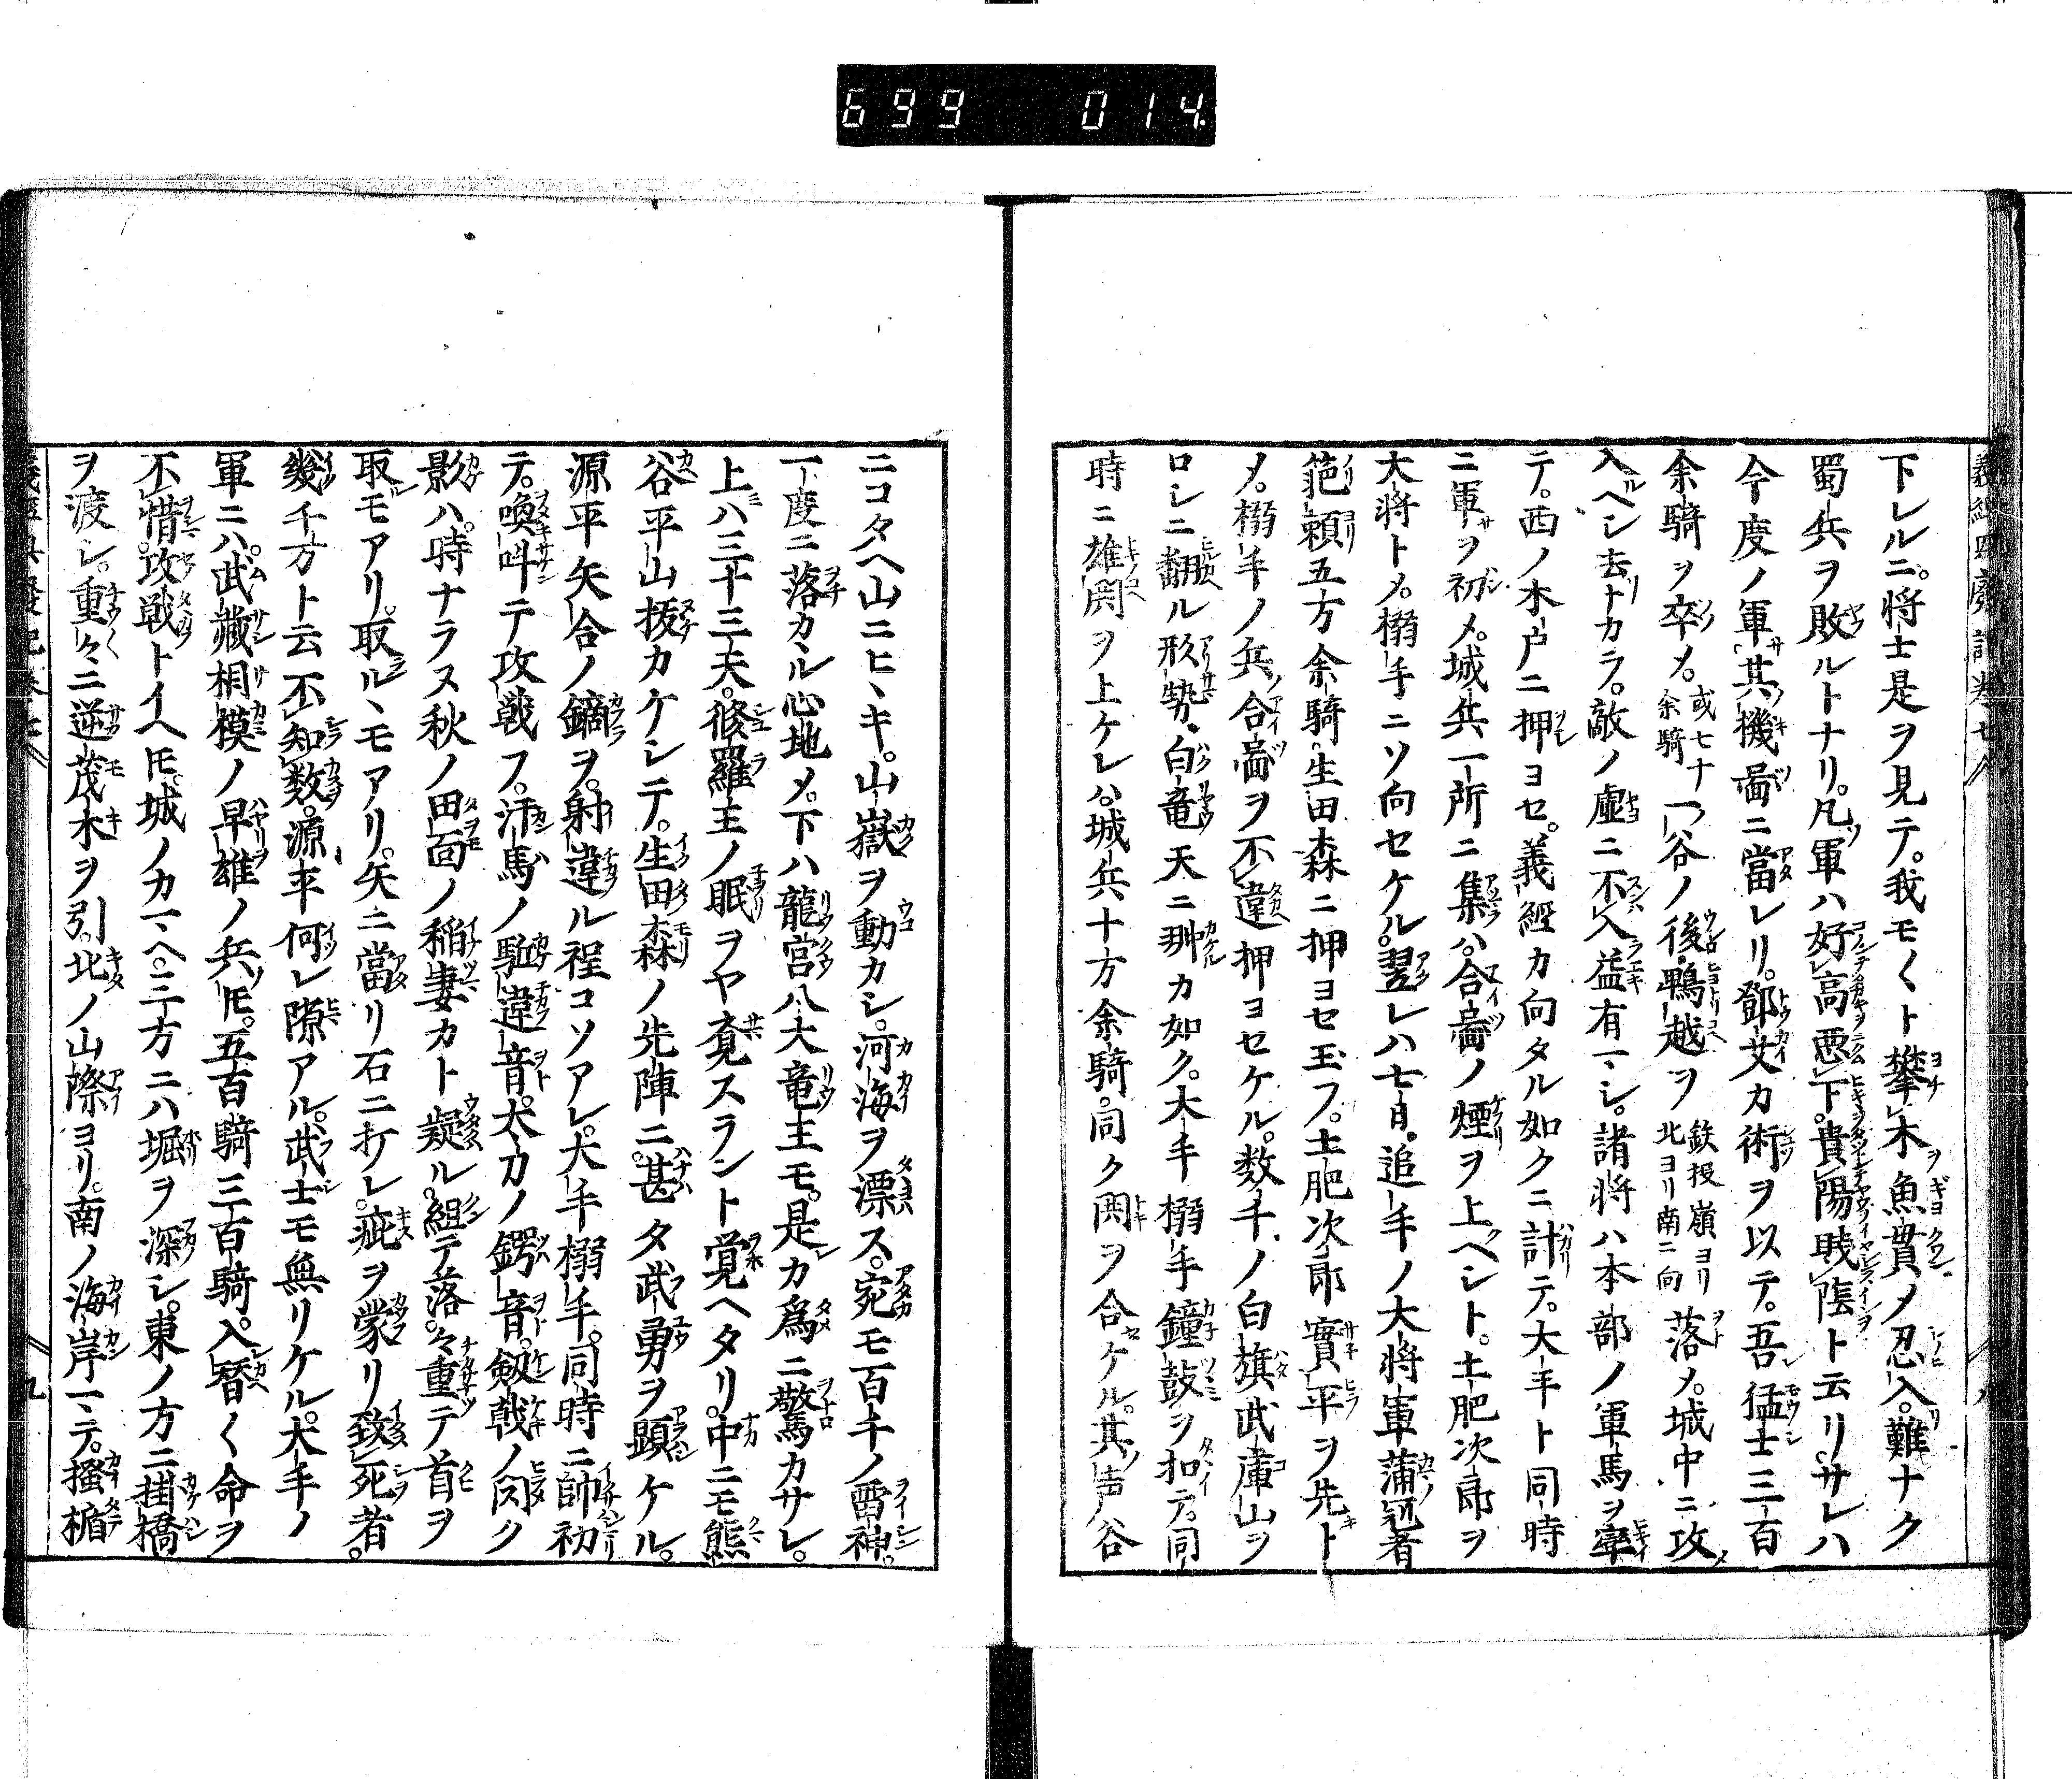 699 014
下レルニ。将士是ヲ見テ。我モ〱ト攀木魚貫メ忍入。難ナク
蜀兵ヲ敗ルトナリ。凡軍ハ好高悪下。貴陽賎陰ト云リ。サレハ
今度ノ軍其機啚ニ當レリ。鄧艾カ術ヲ以テ。吾猛士三百
余騎ヲ卒メ。或七十余騎一谷ノ後鴨越ヲ鉄拐嶺ヨリ北ヨリ南ニ向落メ。城中ニ攻
入ヘシ去トカラ。敵ノ虚ニ不入益有マシ。諸将ハ本部ノ軍馬ヲ率
テ。西ノ木戸ニ押ヨセ。義經カ向タル如クニ計テ。大手ト同時
ニ軍ヲ初メ。城兵一所ニ集ハ。合啚ノ煙ヲ上ヘシト。土肥次郎ヲ
大将トメ。搦手ニソ向セケル。翌レハ七日。追手ノ大将軍蒲冠者
範頼五万余騎。生田森ニ押ヨセ玉フ。土肥次郎實平ヲ先ト
メ。搦手ノ兵。合啚ヲ不違押ヨセケル。数千ノ白旗武庫山ヲ
ロシニ翻ル形勢。白竜天ニ翀カ如ク。大手搦手鐘鼓ヲ扣テ。同
時ニ雄閧ヲ上ケレハ。城兵十万余騎。同ク閧ヲ合ケル。其声谷
ニコタヘ山ニヒヽキ。山嶽ヲ動カシ。河海ヲ漂ス。宛モ百千ノ雷神。
一度ニ落カヽル心地メ。下ハ龍宮八大竜王モ。是カ為ニ驚カサレ。
上ハ三十三天。修羅王ノ眠ヲヤ覔スラント覚ヘタリ。中ニモ熊
谷平山抜カケシテ。生田森ノ先陣ニ。甚タ武勇ヲ顕ケル。
源平矢合ノ鏑ヲ。射違ル程コソアレ。大手搦手。同時ニ師初
テ。喚叫テ攻戦フ。汗馬ノ駈違音。太刀ノ鍔音。剱戟ノ閃ク
影ハ。時ナラス秋ノ田面ノ稲妻カト疑ル。組テ落。々重テ首ヲ
取モアリ。取ルヽモアリ。矢ニ當リ石ニ打レ。疵ヲ蒙リ致死者。
幾千万ト云不知数。源平何レ隙アル。武士モ無リケル。大手ノ
軍ニハ。武藏相模ノ早雄ノ兵𪜈。五百騎三百騎。入替〱命ヲ
不惜。攻戦トイヘ𪜈。城ノカマヘ。三方ニハ堀ヲ深シ。東ノ方ニ掛橋
ヲ渡シ。重々ニ逆茂木ヲ引。北ノ山際ヨリ。南ノ海岸マテ。掻楯